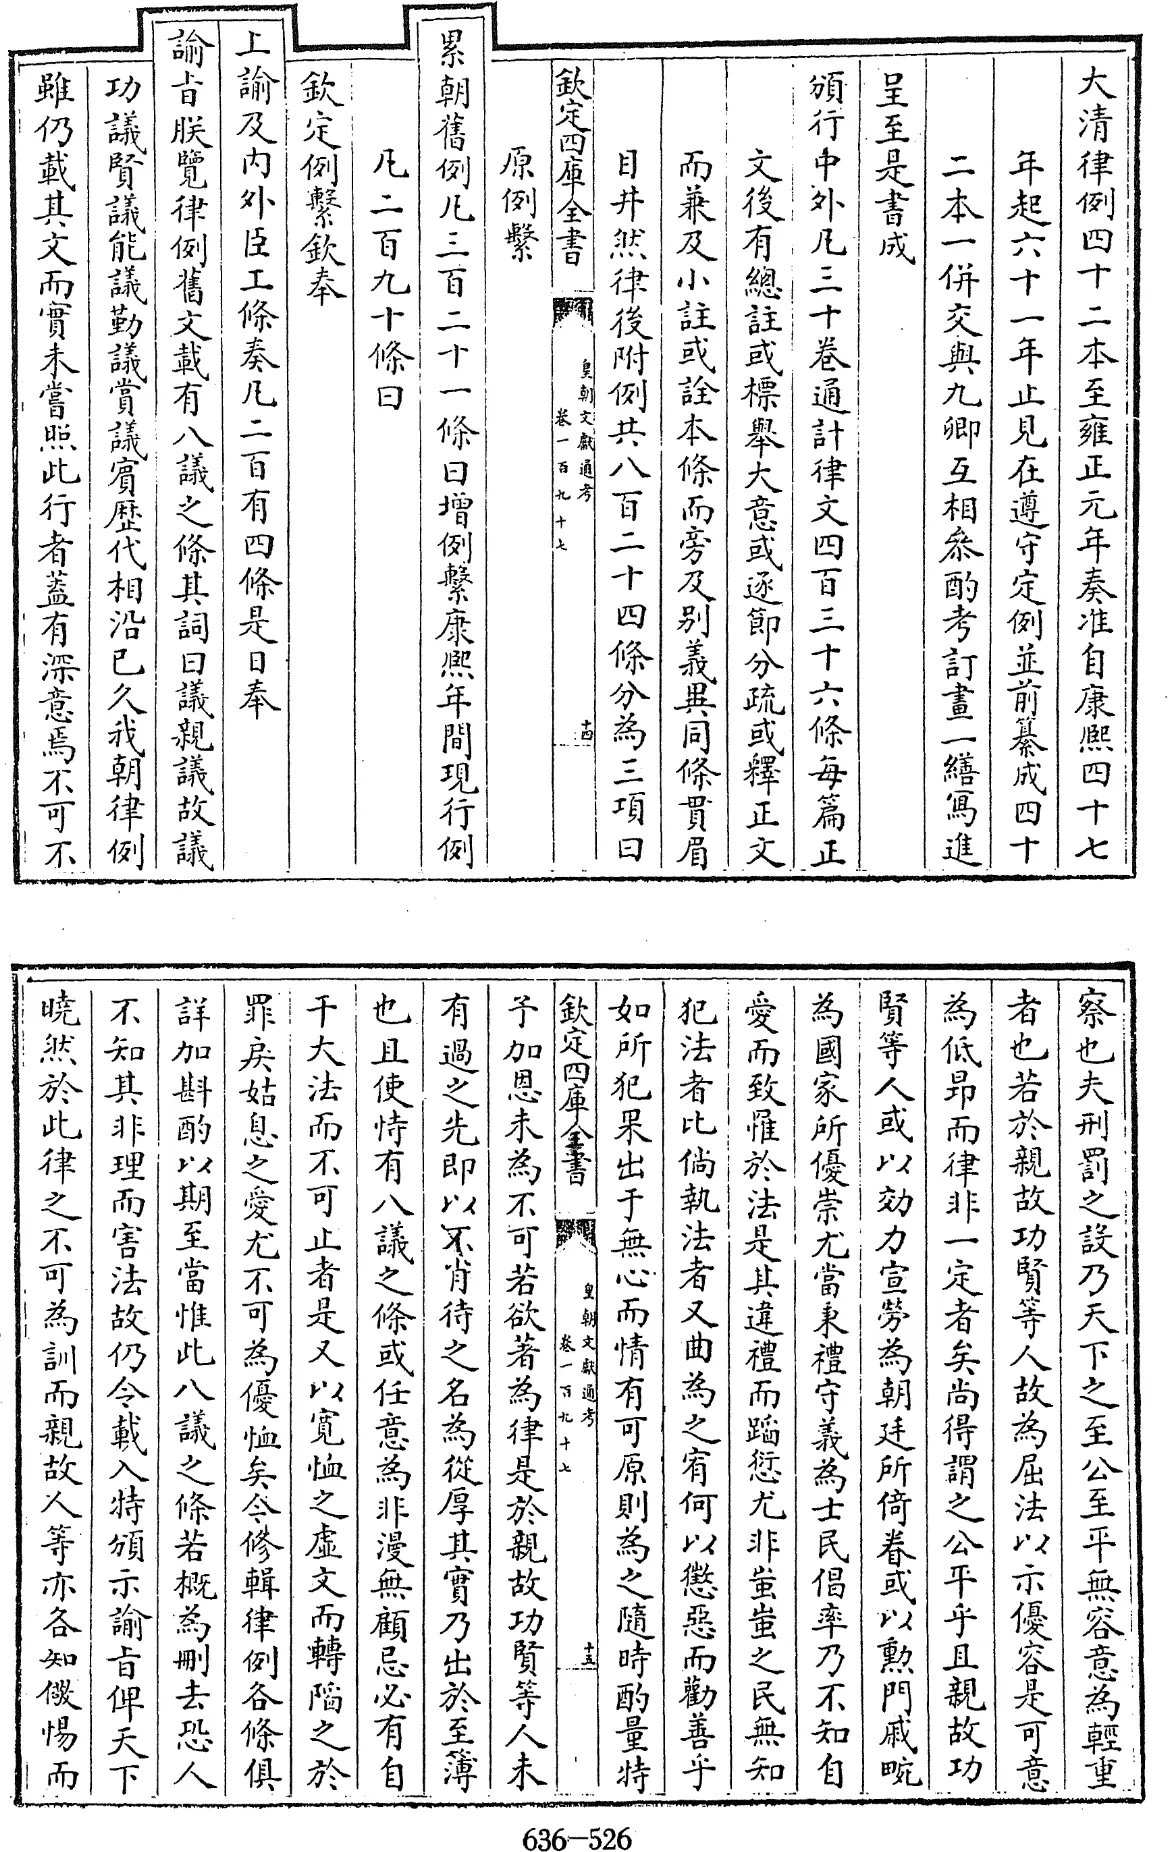 大清律例四十二本至雍正元年奏准自康熙四十七
年起六十一年止見在遵守定例並前纂成四十
二本一併交與九卿互相叅酌考訂畫一繕寫進
呈至是書成
頒行中外凡三十卷通計律文四百三十六條每篇正
文後有總註或標舉大意或逐節分疏或釋正文
而兼及小註或詮本條而旁及别義異同條貫眉
目井然律後附例共八百二十四條分為三項曰
欽定四庫全書
皇朝文獻通考
卷一百九十七
十四
原例繫
累朝舊例凡三百二十一條曰增例繫康熙年間現行例
凡二百九十條曰
欽定例繫欽奉
上諭及内外臣工條奏凡二百有四條是日奉
諭旨朕覽律例舊文載有八議之條其詞曰議親議故議
功議賢議能議勤議賞議賓歷代相沿已久我朝律例
雖仍載其文而實未嘗照此行者蓋有深意焉不可不
察也夫刑罰之設乃天下之至公至平無容意為輕重
者也若於親故功賢等人故為屈法以示優容是可意
為低昂而律非一定者矣尚得謂之公平乎且親故功
賢等人或以効力宣勞為朝廷所倚眷或以勲門戚畹
為國家所優崇尤當秉禮守義為士民倡率乃不知自
愛而致罹於法是其違禮而蹈愆尤非蚩蚩之民無知
犯法者比倘執法者又曲為之宥何以懲惡而勸善乎
如所犯果出于無心而情有可原則為之隨時酌量特
欽定四庫全書
皇朝文獻通考
卷一百九十七
十五
予加恩未為不可若欲著為律是於親故功賢等人未
有過之先即以不肖待之名為從厚其實乃出於至薄
也且使恃有八議之條或任意為非漫無顧忌必有自
干大法而不可止者是又以寛恤之虛文而轉陷之於
罪戾姑息之愛尤不可為優恤矣今修輯律例各條俱
詳加斟酌以期至當惟此八議之條若概為刪去恐人
不知其非理而害法故仍令載入特頒示諭旨俾天下
曉然於此律之不可為訓而親故人等亦各知儆惕而
636-526